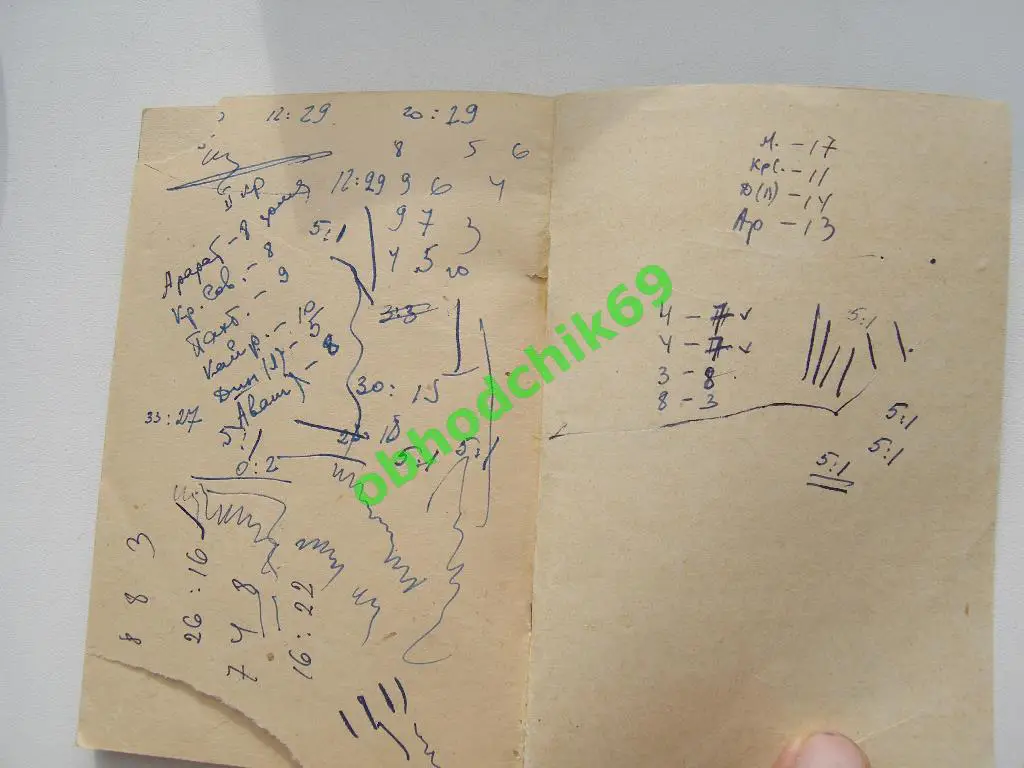 12:29 20:29
8 5 6
12:29 9 6 4
5:1 9 7 3
4 5 20
Арарат - 8
Кр. Сов. - 8
Пахт. - 9
Кайр. - 10
Дин (Л) - 5
- 8
3:3
30: 15
33:27
5:1
0:2
18
5:1 5:1
8 8 3
26:16
7 4 8
16:22
М. - 17
Кр С. - 11
Д(Л) - 14
Ар - 13
4 - 7
4 - 7
3 - 8
8 - 3
5:1
5:1
5:1
5:1
obhodchik69